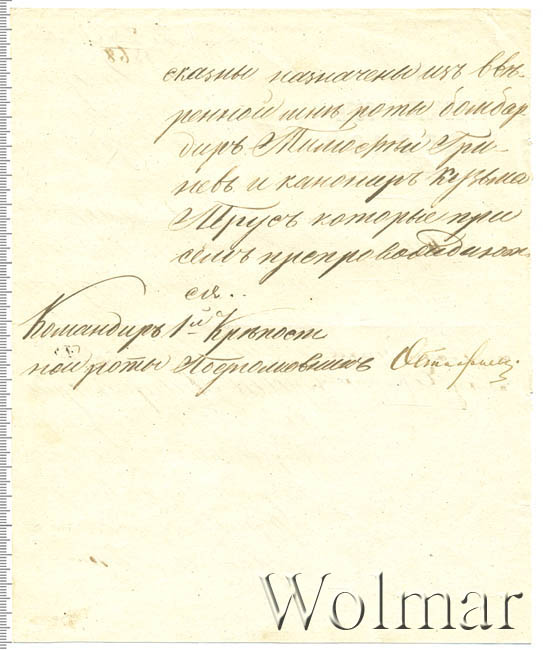 сказны назначены изъ ввѣ-
ренной мнѣ роты бомбар
диръ Тимофѣй Гри-
невъ и канониръ Кузьма
Трусъ которые при
семъ препровождают
ся..
Командиръ 1й Крѣпост
ной роты Подполковникъ
Wolmar